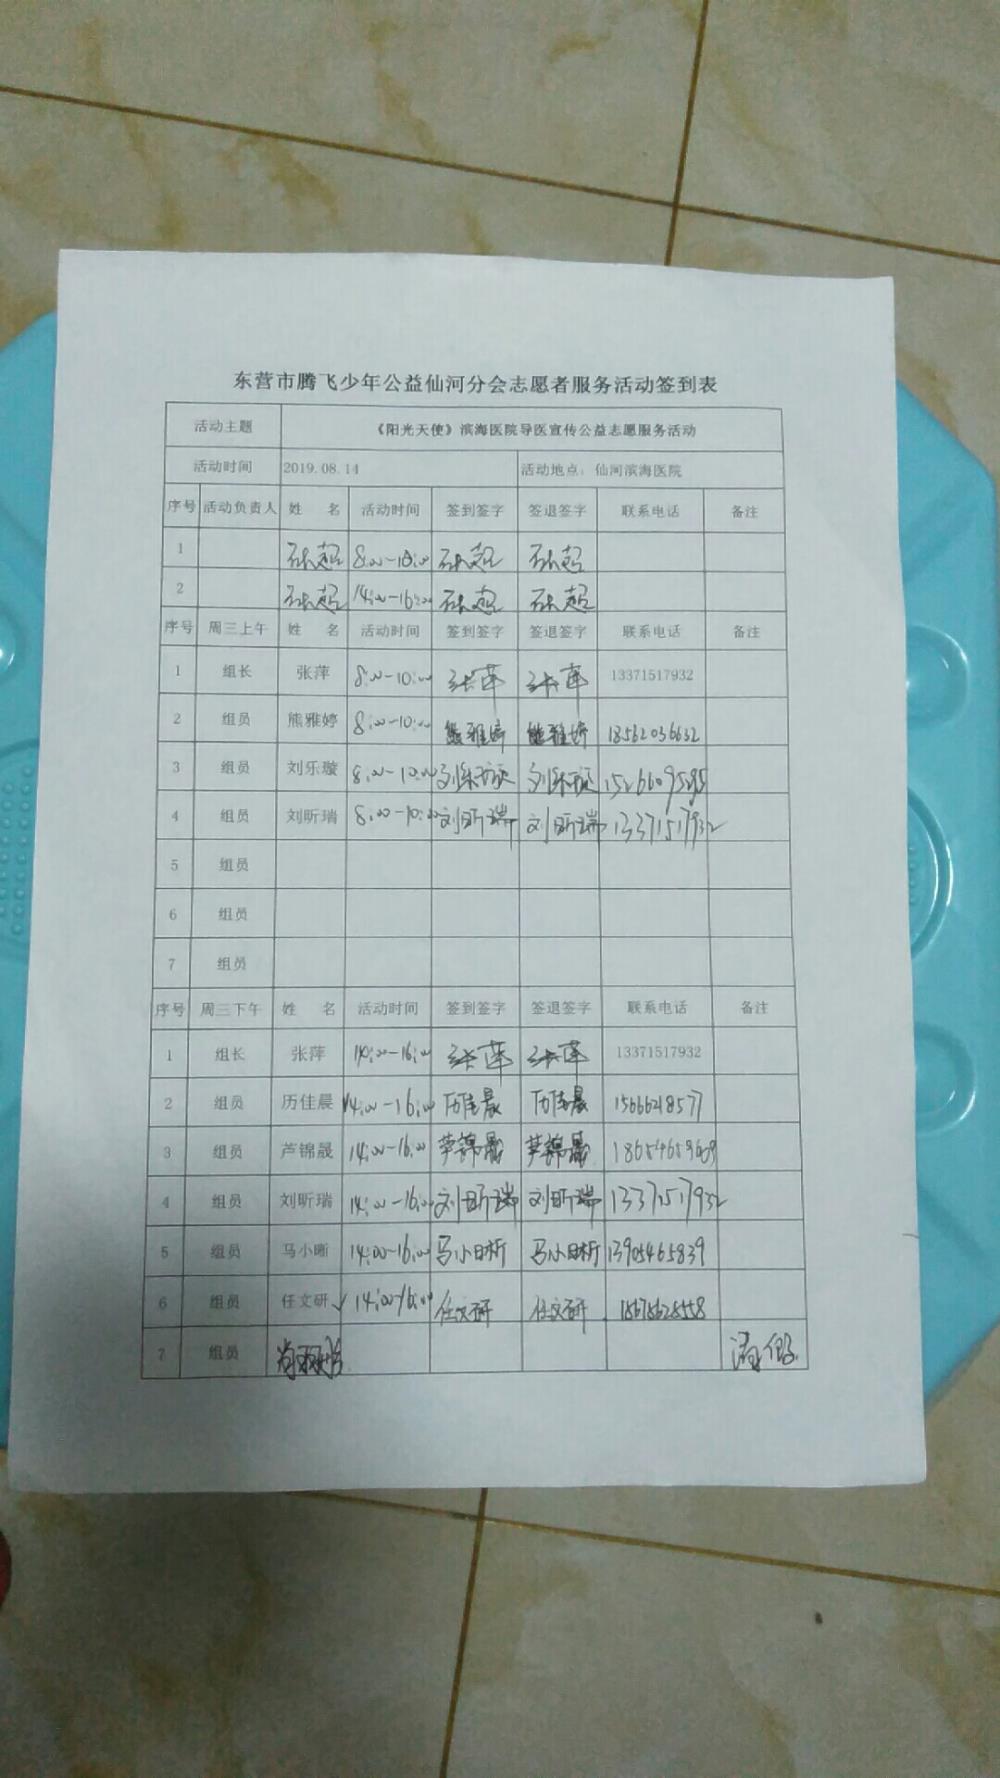 东营市腾飞少年公益仙河分会志愿者服务活动签到表
活动主题 《阳光天使》滨海医院导医宣传公益志愿服务活动
活动时间 2019.08.14 活动地点：仙河滨海医院
序号 活动负责人 姓 名 活动时间 签到签字 签退签字 联系电话 备注
1 8:00-10:00
2 14:00-16:00
序号 周三上午 姓 名 活动时间 签到签字 签退签字 联系电话 备注
1 组长 张萍 8:00-10:00 张萍 张萍 13371517932
2 组员 熊雅婷 8:00-10:00 熊雅婷 熊雅婷 18562036632
3 组员 刘乐璇 8:00-10:00 刘乐璇 刘乐璇
4 组员 刘昕瑞 8:00-10:00 刘昕瑞 刘昕瑞 13371517932
5 组员
6 组员
7 组员
序号 周三下午 姓 名 活动时间 签到签字 签退签字 联系电话 备注
1 组长 张萍 14:00-16:00 张萍 张萍 13371517932
2 组员 历佳晨 14:00-16:00 历佳晨 历佳晨 15666218577
3 组员 芦锦晟 14:00-16:00 芦锦晟 芦锦晟
4 组员 刘昕瑞 14:00-16:00 刘昕瑞 刘昕瑞 13371517932
5 组员 马小晰 14:00-16:00 马小晰 马小晰 13905465839
6 组员 任文研 14:00-16:00 任文研 任文研 18678628558
7 组员